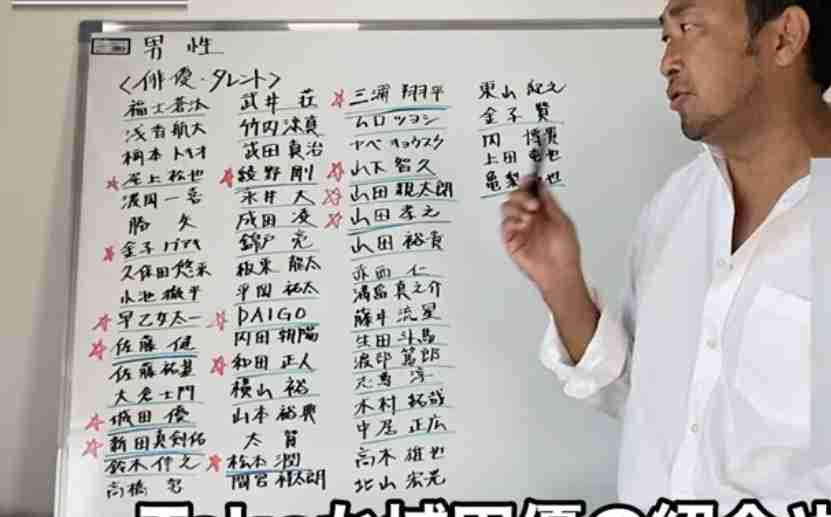 男性
<俳優・タレント>
福士蒼汰
浅香航大
柄本トキオ
☆尾上松也
濱田一喜
勝 矢
☆金子ノブアキ
久保田悠来
小池徹平
☆早乙女太一
☆佐藤 健
佐藤祐基
大倉士門
☆城田 優
☆新田真剣佑
鈴木伸之
高橋
武井 荘
竹内涼真
武田真治
☆綾野 剛
永井 大
成田 凌
錦戸 亮
板東龍太
平岡祐太
☆DAIGO
内田朝陽
☆和田正人
横山 裕
山本裕典
太 賀
☆松本 潤
間宮祥太朗
☆三浦翔平
ムロツヨシ
ヤベキョウスケ
☆山下智久
☆山田親太朗
☆山田孝之
山田裕貴
赤西 仁
満島真之介
藤井流星
生田斗馬
渡部篤郎
志馬 淳
木村拓哉
中居正広
高木雄也
北山宏光
東山紀之
金子 賢
内 博貴
上田竜也
亀梨 也